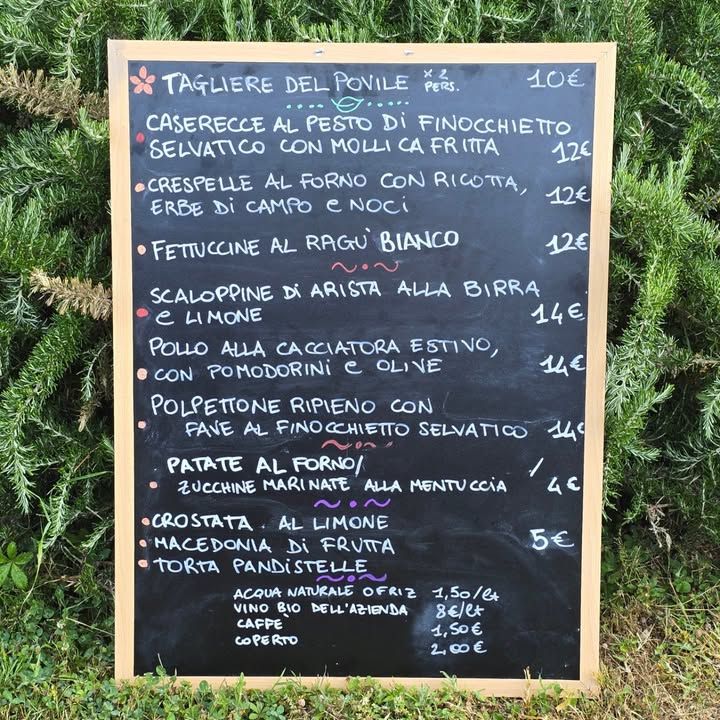 TAGLIERE DEL POVILE x 2 PERS. 10€
CASERECCE AL PESTO DI FINOCCHIETTO
SELVATICO CON MOLLICA FRITTA 12€
CRESPELLE AL FORNO CON RICOTTA,
ERBE DI CAMPO e NOCI 12€
FETTUCCINE AL RAGU' BIANCO 12€
SCALOPPINE DI ARISTA ALLA BIRRA
e LIMONE 14€
POLLO ALLA CACCIATORA ESTIVO,
CON POMODORINI e OLIVE 14€
POLPETTONE RIPIENO CON
FAVE AL FINOCCHIETTO SELVATICO 14€
PATATE AL FORNO/
ZUCCHINE MARINATE ALLA MENTUCCIA / 4€
CROSTATA AL LIMONE
MACEDONIA DI FRUTTA 5€
TORTA PANDISTELLE
ACQUA NATURALE O FRIZ 1,50/lt
VINO BIO DELL'AZIENDA 8€/lt
CAFFE' 1,50€
COPERTO 2,00€